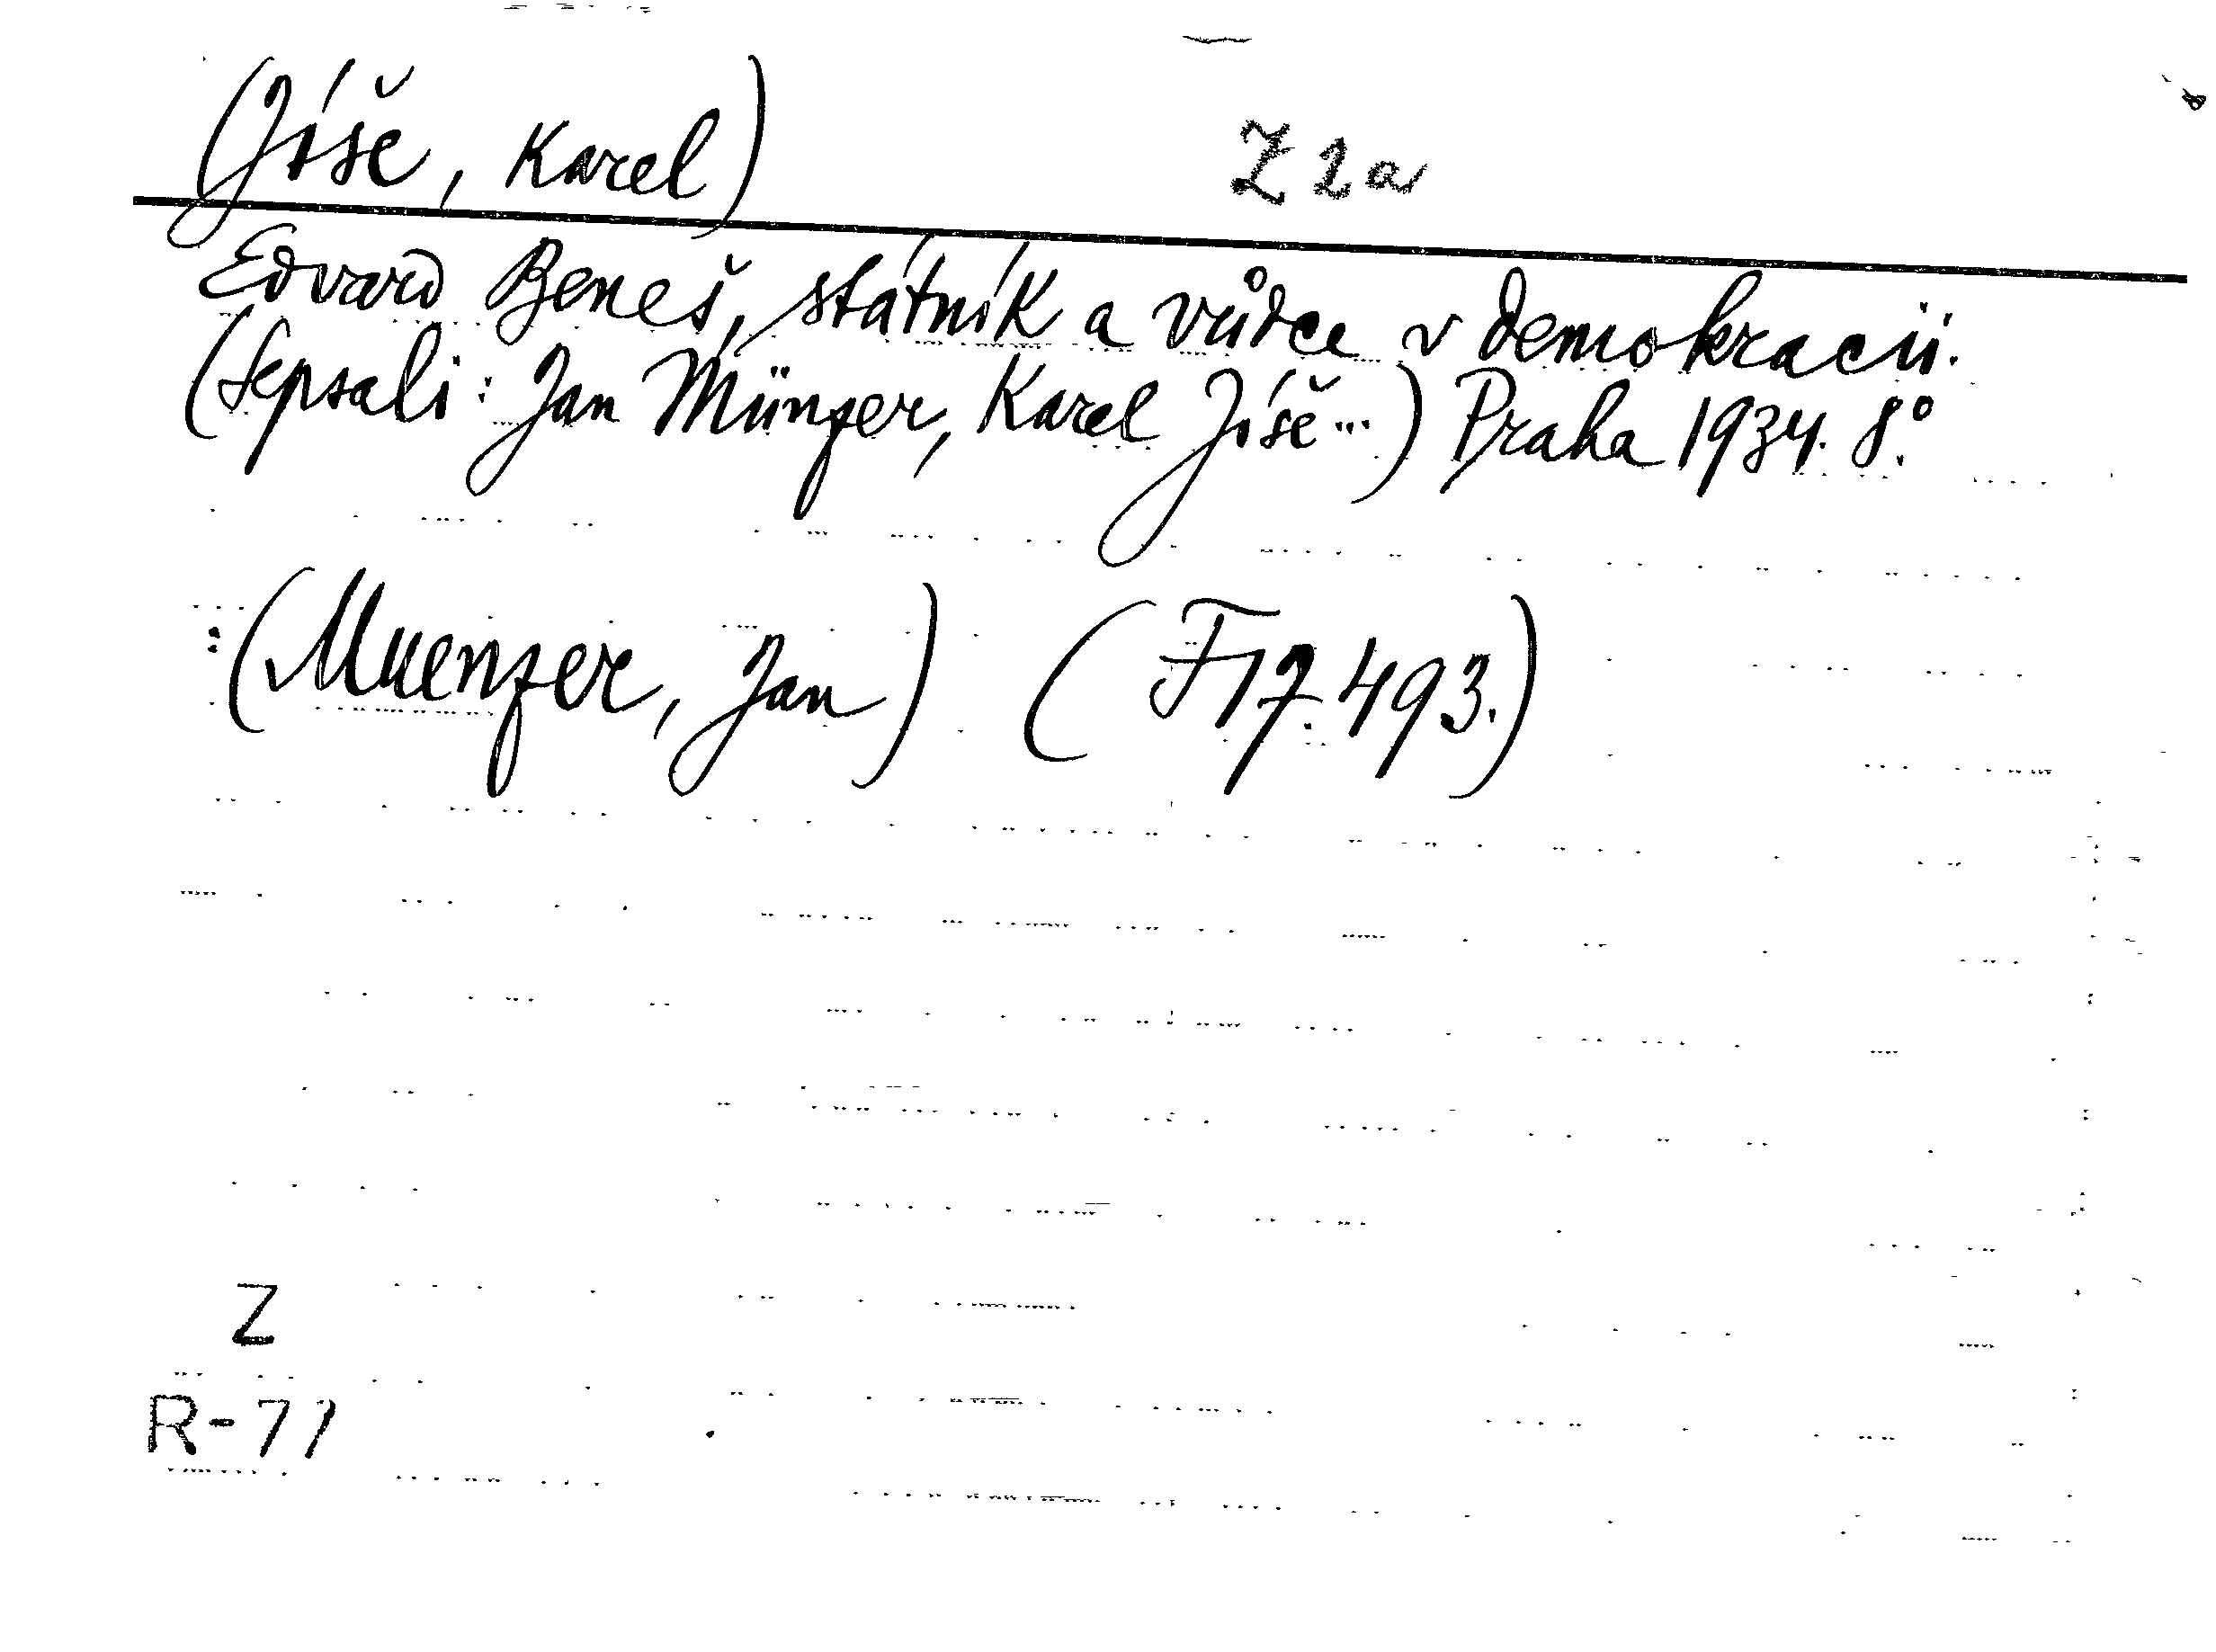 (Jíše, Karel) Z 2a
Edvard Beneš, státník a vůdce v demokracii.
(Sepsali: Jan Münzer, Karel Jíše...) Praha 1934. 8°.
:(Muenzer, Jan) (F 17.493.)
Z
R-77